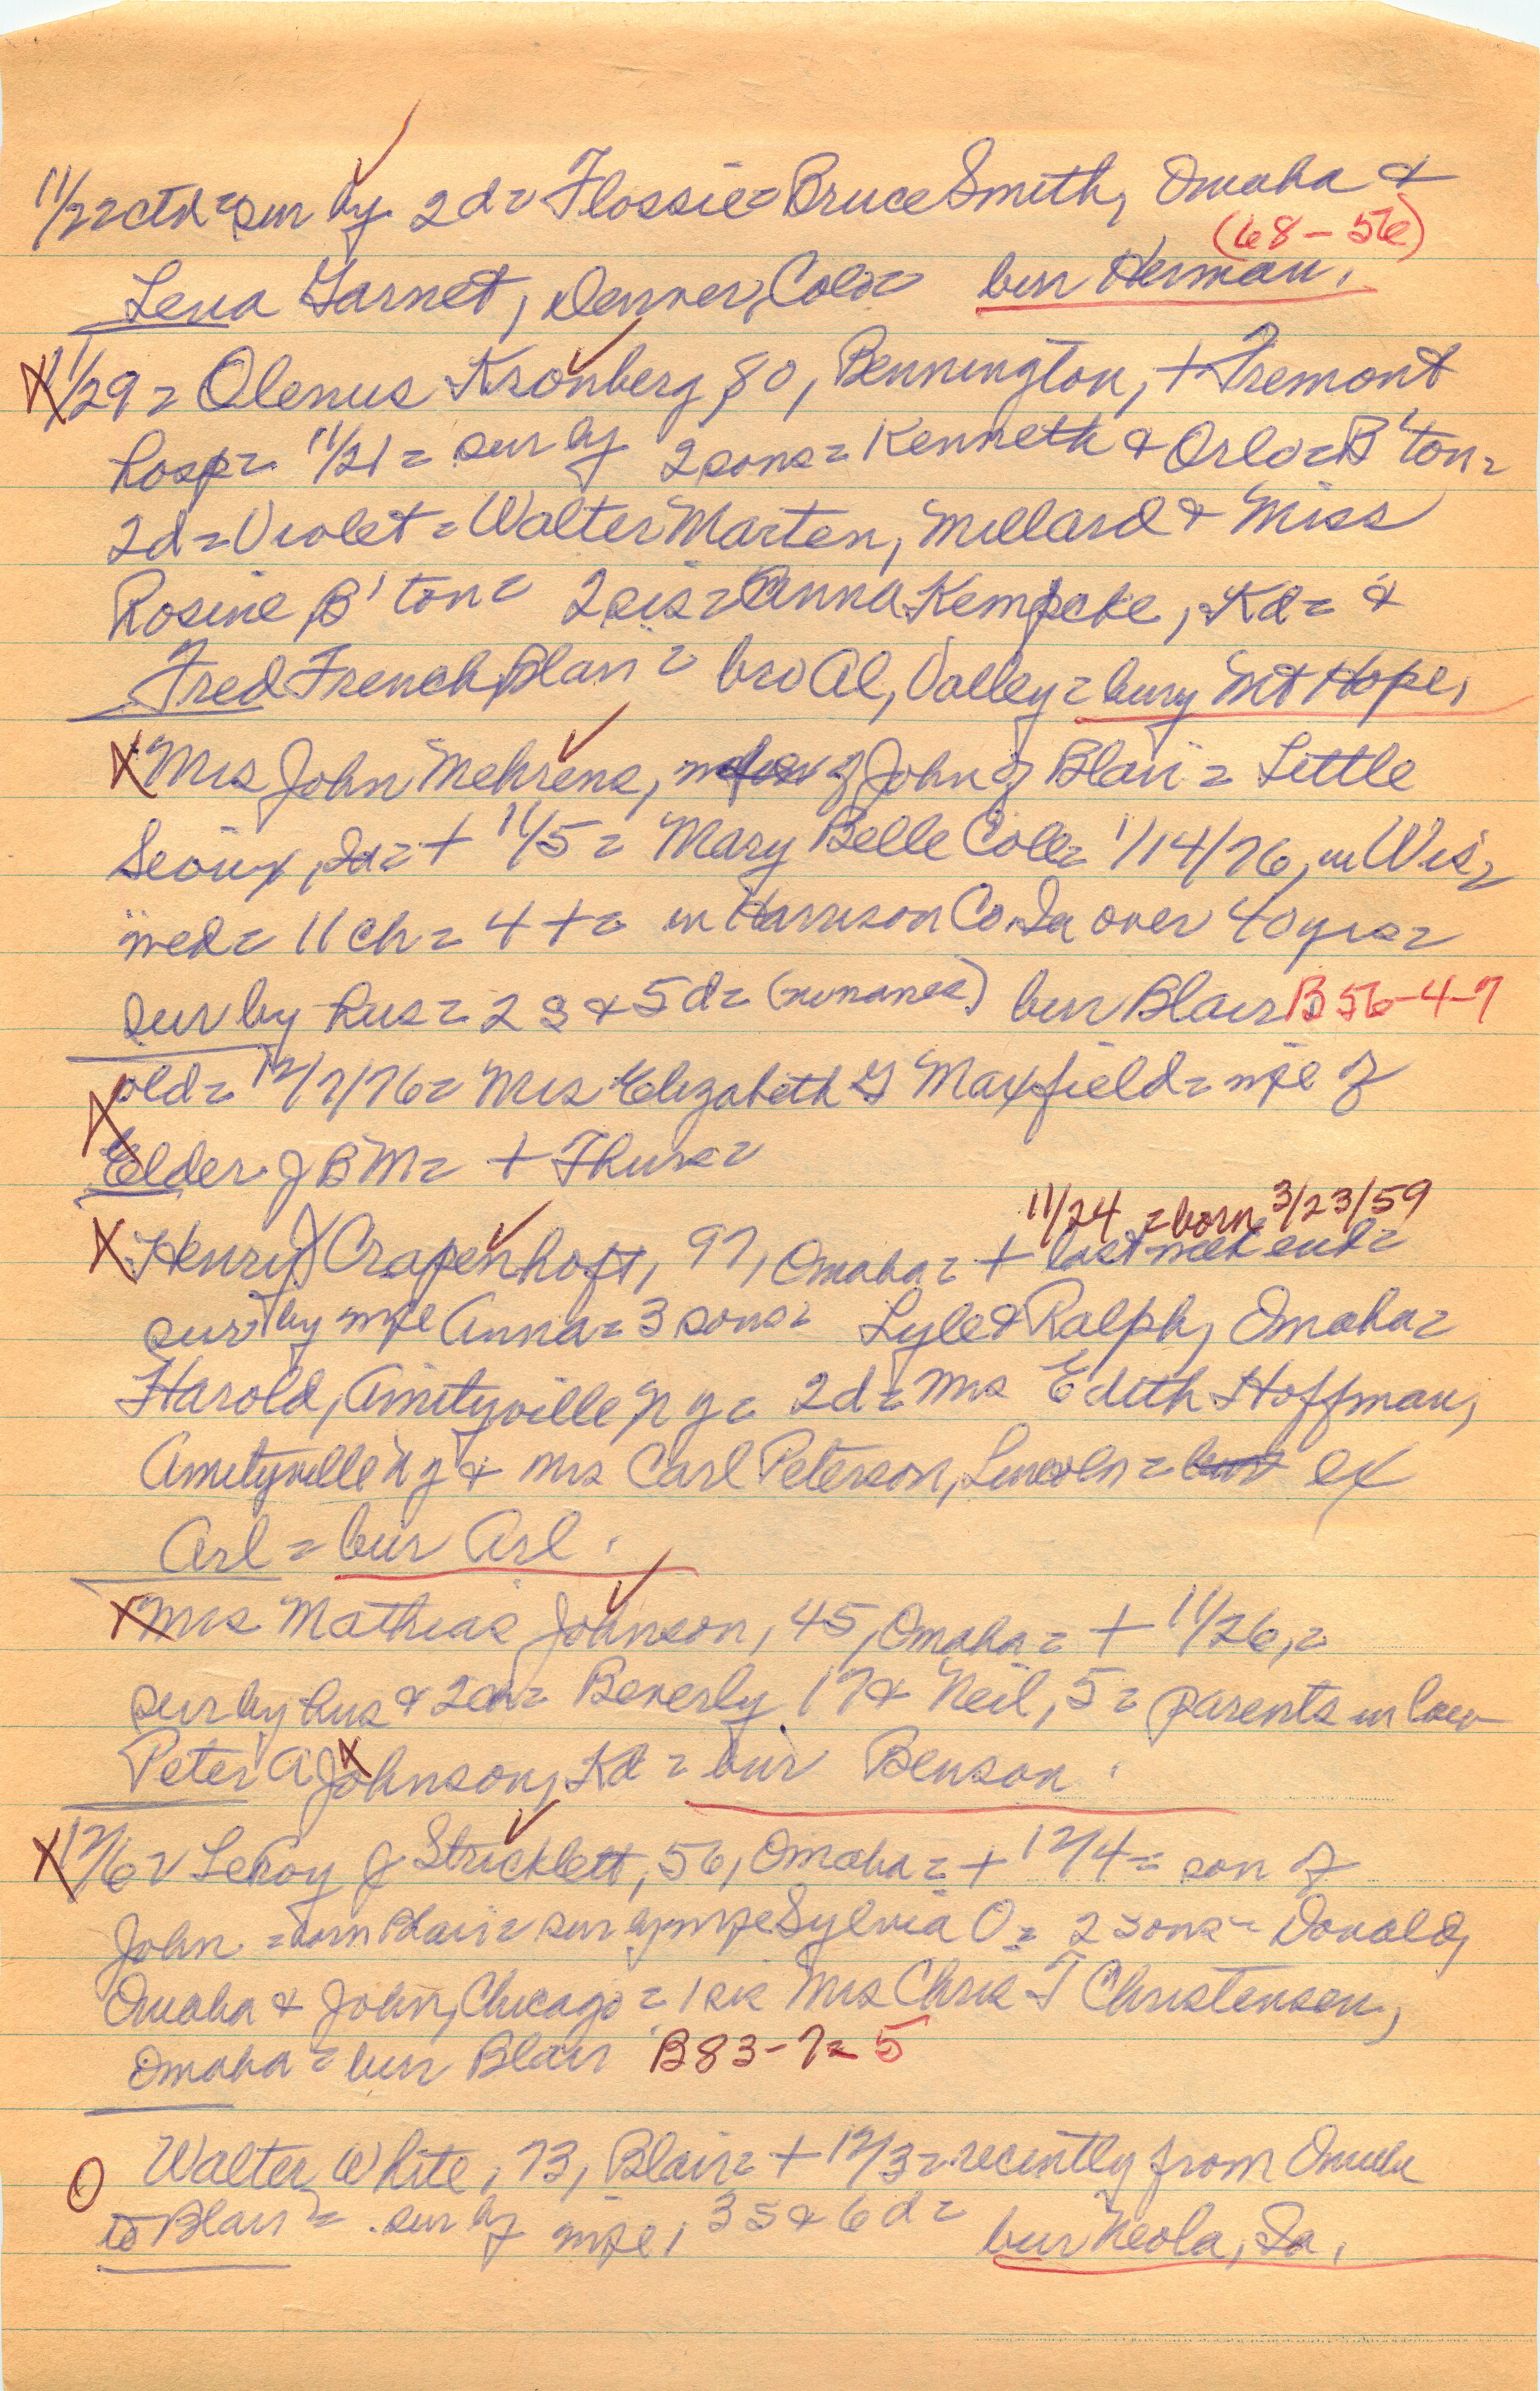 11/22 ctd = sur by 2d = Flossie = Bruce Smith, Omaha &
(68-56)
Lena Garnet, Denver, Colo = bur Herman.
X 11/29 = Olenus Kronberg, 80, Bennington, + Fremont
hosp = 11/21 = sur by 2 sons = Kenneth & Orlo = B'ton =
2d = Violet = Walter Marten, Millard & Miss
Rosine, B'ton = 2 sis = Anna Kempcke, Kd = &
Fred French, Blair = bro Al, Valley = bury Mt Hope,
X Mrs John Mehrens, of John of Blair = Little
Sioux, Ia = + 11/5 = Mary Belle Cole = 1/14/76, in Wis =
wed = 11 ch = 4 + = in Harrison Co. Ia over 40 yrs =
sur by hus = 2 s & 5 d = (no names) bur Blair B 56-4-7
X old = 12/7/76 = Mrs Elizabeth G Maxfield = wife of
Elder J B M = + Thurs =
11/24 = born 3/23/59
X Henry J Crapenhoft, 97, Omaha = + last week end =
sur by wife Anna = 3 sons = Lyle & Ralph, Omaha =
Harold, Amityville N Y = 2d = Mrs Edith Hoffman,
Amityville N Y & Mrs Carl Peterson, Lincoln = bur ex
Arl = bur Arl.
X Mrs Mathias Johnson, 45, Omaha = + 11/26, =
sur by hus & 2 ch = Beverly 17 & Neil, 5 = parents in law
Peter A Johnson, Kd = bur Benson.
X 12/6 = LeRoy J Stricklett, 56, Omaha = + 12/4 = son of
John = born Blair = sur by wife Sylvia O = 2 sons = Donald,
Omaha & John, Chicago = 1 sis Mrs Chris T Christensen,
Omaha = bur Blair B 83-7 = 5
O Walter White, 73, Blair = + 12/3 = recently from Omaha
to Blair = sur by wife, 3 s & 6 d = bur Neola, Ia.